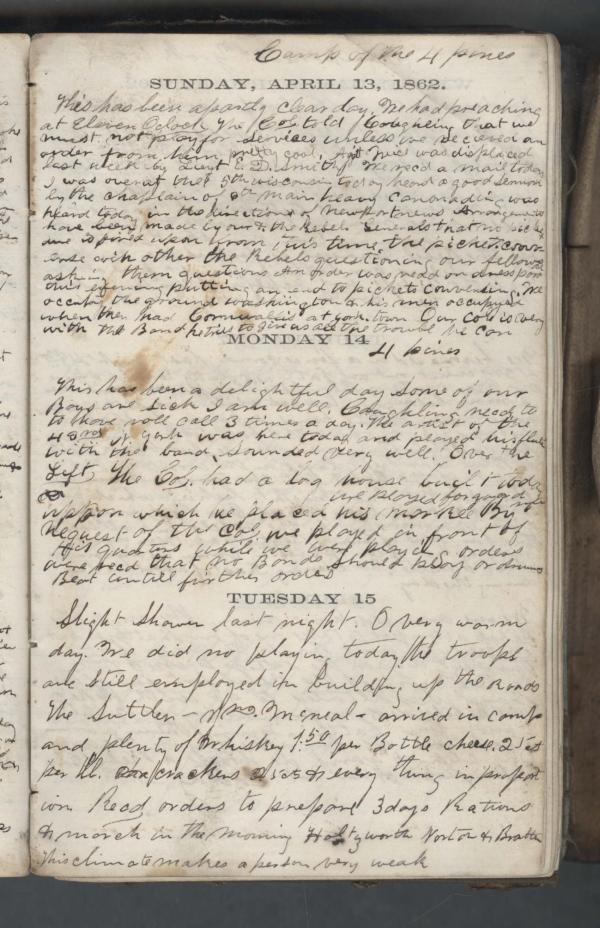 Camp of the 4 pines
SUNDAY, APRIL 13, 1862.
This has been a partly clear day. We had preaching
at Eleven Oclock The Col told Coughling that we
must not play for services unless we received an
order from him pretty cool, was displaced
last week by Lieut E. D. Smith We rec'd a mail today
I was over at the 5th wisconsin today heard a good sermon
by the chaplain of 6th Main heavy canonading was
heard today in the directions of Newportnews Arrangements
have been made by our & the Rebels Generals that no
is fired upon from this time, the pickets conv
erse with other the Rebels questioning our fellows
asking them questions An order was read on dress par
this evening putting an end to pickets conversing. We
occupy the ground washington & his men occupyed
when they had Cornwallis at york town Our Col is very
with the Band he tries to give us all the trouble he can
MONDAY 14
4 pines
This has been a delightful day some of our
Boys are sick I am well. Coughling need to
to have roll call 3 times a day. The artist of the
43rd N york was here today and played his flute
with the band. sounded very well. Over the
Left, The Col. had a log house built today
we played for guard
uppon which he placed his markee By
request of the Col. we played in front of
his quarters while we were playing orders
were recd that no Bands should play or drums
Beat untill further orders
TUESDAY 15
Slight shower last night. O very warm
day. We did no playing today the troops
are still employed in building up the Roads
The Suttler - Mcneal - arrived in camp
and plenty of Whiskey 1.50 per Bottle cheese 25 ct
per lb. crackers 25 cts & every thing in proport
ion Read orders to prepare 3 days Rations
& march in the morning Norton &
This climate makes a person very weak